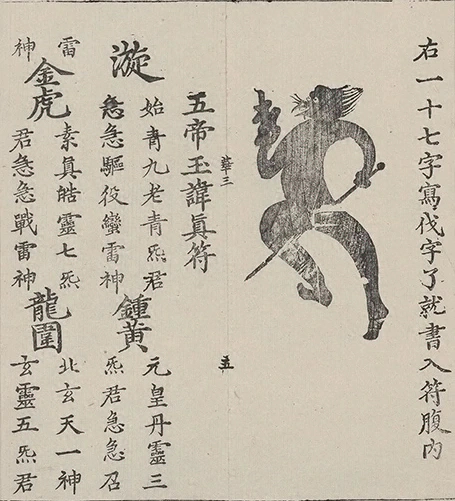 右一十七字寫伐字了就書入符腹内
華三
五
五帝玉諱眞符
漩
始青九老青炁君
急急驅役蠻雷神
鍾黄
元皇丹靈三
炁君急急召
雷
神
金虎
素眞皓靈七炁
君急急戰雷神
龍圍
北玄天一神
玄靈五炁君